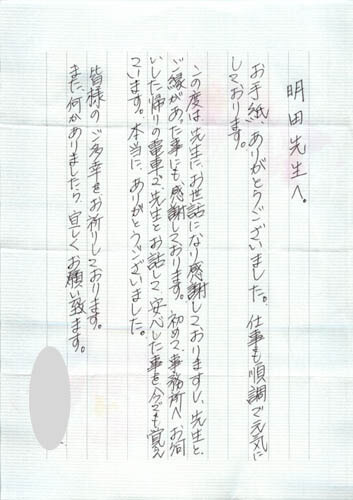 明田先生へ。
お手紙、ありがとうございました。仕事も順調で元気に
しております。
この度は先生にお世話になり感謝しておりますし、先生と
ご縁があった事にも感謝しております。初めて事務所へお伺
いした帰りの電車で、先生とお話して安心した事を今でも覚え
ています。本当に、ありがとうございました。
皆様のご多幸をお祈りしております。
また、何かありましたら、宜しくお願い致します。